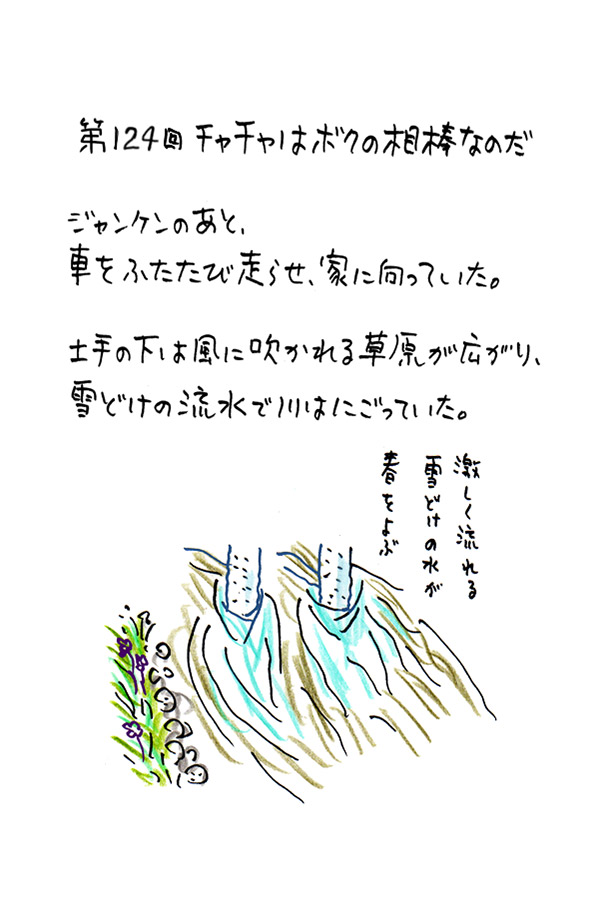 第124回 チャチャはボクの相棒なのだ
ジャンケンのあと、
車をふたたび走らせ、家に向っていた。
土手の下は風に吹かれる草原が広がり、
雪どけの流水で川はにごっていた。
激しく流れる
雪どけの水が
春をよぶ